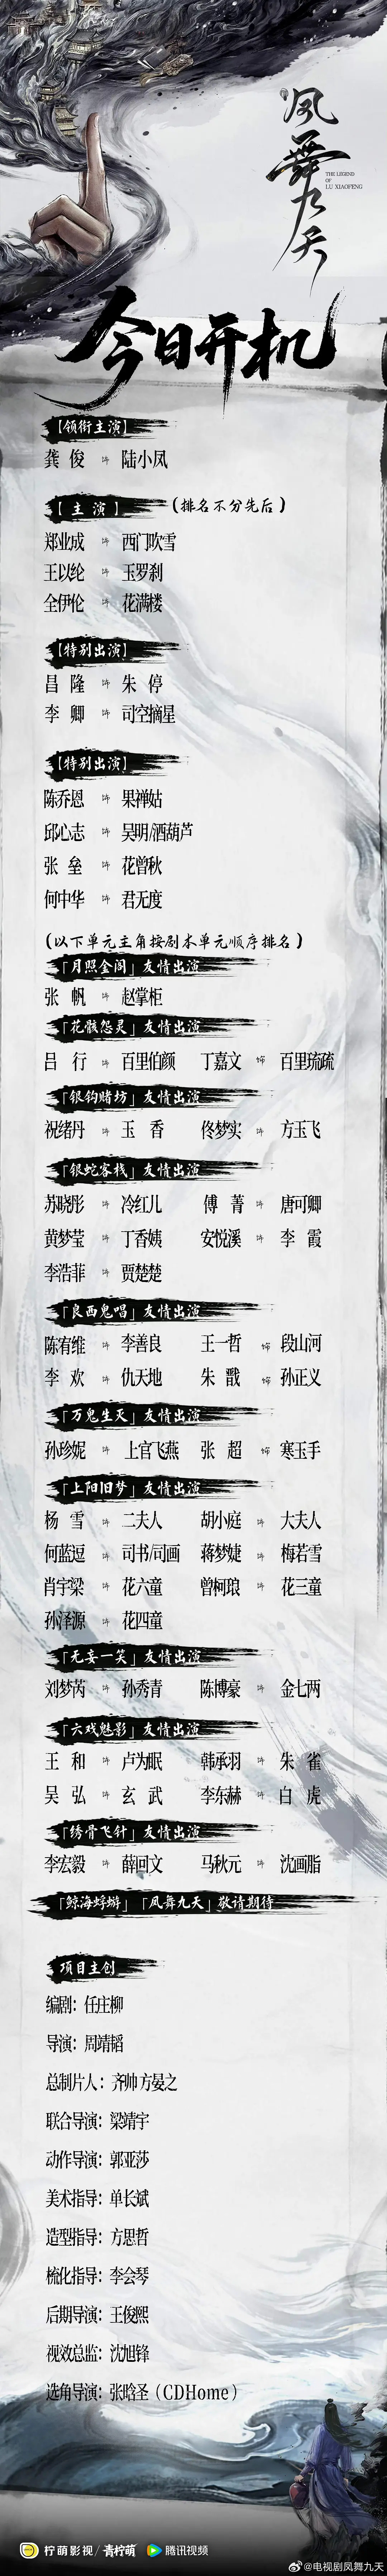 凤舞九天
THE LEGEND
OF
LU XIAOFENG
今日开机
【领衔主演】
龚俊 饰 陆小凤
【主演】(排名不分先后)
郑业成 饰 西门吹雪
王以纶 饰 玉罗刹
全伊伦 饰 花满楼
【特别出演】
昌隆 饰 朱停
李卿 饰 司空摘星
【特别出演】
陈乔恩 饰 果禅姑
邱心志 饰 吴明/洒葫芦
张垒 饰 花曾秋
何中华 饰 君无度
(以下单元主角按剧本单元顺序排名)
「月照金阁」友情出演
张帆 饰 赵掌柜
「花骸怨灵」友情出演
吕行 饰 百里伯颜 丁嘉文 饰 百里琉疏
「银钩赌坊」友情出演
祝绪丹 饰 玉香 佟梦实 饰 方玉飞
「银蛇客栈」友情出演
苏晓彤 饰 冷红儿 傅菁 饰 唐可卿
黄梦莹 饰 丁香姨 安悦溪 饰 李霞
李浩菲 饰 贾楚楚
「良西鬼唱」友情出演
陈宥维 饰 李善良 王一哲 饰 段山河
李欢 饰 仇天地 朱戬 饰 孙正义
「万鬼生灭」友情出演
孙珍妮 饰 上官飞燕 张超 饰 寒玉手
「上阳旧梦」友情出演
杨雪 饰 二夫人 胡小庭 饰 大夫人
何蓝逗 饰 司书/司画 蒋梦婕 饰 梅若雪
肖宇梁 饰 花六童 曾柯琅 饰 花三童
孙泽源 饰 花四童
「无妄一笑」友情出演
刘梦芮 饰 孙秀青 陈博豪 饰 金七两
「六戏魅影」友情出演
王和 饰 卢为眠 韩承羽 饰 朱雀
吴弘 饰 玄武 李东赫 饰 白虎
「绣骨飞针」友情出演
李宏毅 饰 薛可文 马秋元 饰 沈画脂
「鲸海蜉蝣」「凤舞九天」敬请期待
项目主创
编剧：任庄柳
导演：周靖韬
总制片人：齐帅 方晏之
联合导演：梁靖宇
动作导演：郭亚莎
美术指导：单长斌
造型指导：方思哲
梳化指导：李会琴
后期导演：王俊熙
视效总监：沈旭锋
选角导演：张晗圣（CDHome）
柠萌影视/青柠萌 腾讯视频
@电视剧凤舞九天